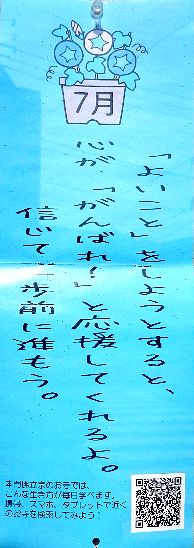 7月
「よいこと」をしようとすると、
心が「がんばれ!」と応援してくれるよ。
信じて一歩前に進もう。
本門佛立宗のお寺では、
こんな生き方が毎日学べます。
スマホ、タブレットで近く
のお寺を検索してみよう!